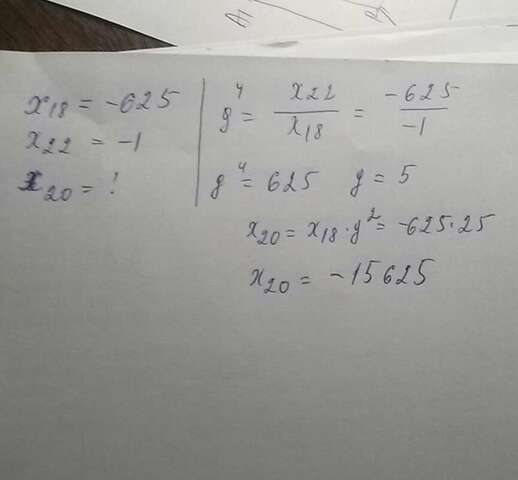 A₁
x₁₈ = -625
x₂₂ = -1
x₂₀ = !
g⁴ = x₂₂/x₁₈ = -625/-1
g⁴ = 625 g = 5
x₂₀ = x₁₈ · g² = -625 · 25
x₂₀ = -15625